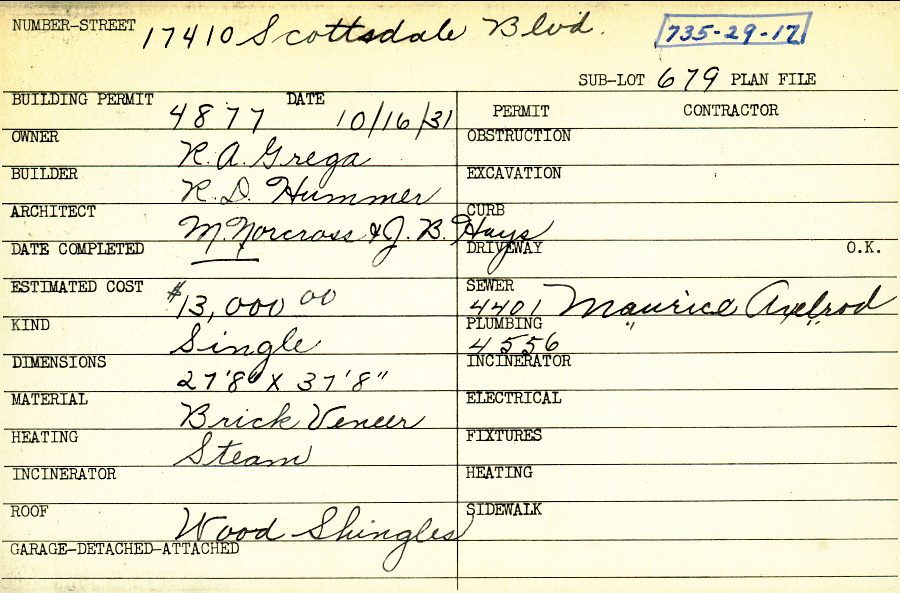 NUMBER-STREET 17410 Scottsdale Blvd. 735-29-17
SUB-LOT 679 PLAN FILE
BUILDING PERMIT 4877 DATE 10/16/31 PERMIT CONTRACTOR
OWNER R. A. Grega OBSTRUCTION
BUILDER R. D. Hummer EXCAVATION
ARCHITECT M. Norcross & J. B. Hays CURB
DATE COMPLETED DRIVEWAY O.K.
ESTIMATED COST $13,000 00 SEWER 4401 Maurice Axelrod
KIND Single PLUMBING 4556 " "
DIMENSIONS 27'8" X 37'8" INCINERATOR
MATERIAL Brick Veneer ELECTRICAL
HEATING Steam FIXTURES
INCINERATOR HEATING
ROOF Wood Shingles SIDEWALK
GARAGE-DETACHED-ATTACHED